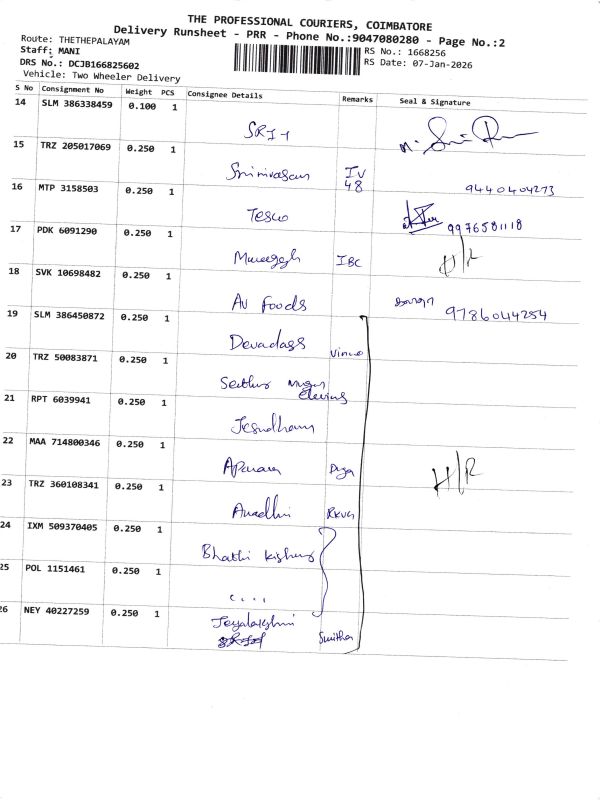 THE PROFESSIONAL COURIERS, COIMBATORE
Delivery Runsheet - PRR - Phone No.:9047080280 - Page No.:2
Route: THETHEPALAYAM
Staff: MANI
RS No.: 1668256
DRS No.: DCJB166825602
RS Date: 07-Jan-2026
Vehicle: Two Wheeler Delivery
S No Consignment No Weight PCS Consignee Details Remarks Seal & Signature
14 SLM 386338459 0.100 1
SRI-1
15 TRZ 205017069 0.250 1
Srinivasan IV 48 9440404273
16 MTP 3158503 0.250 1
Tesco 9976581118
17 PDK 6091290 0.250 1
IBC H/R
18 SVK 10698482 0.250 1
AV Foods 9786044254
19 SLM 386450872 0.250 1
Devadass
20 TRZ 50083871 0.250 1
21 RPT 6039941 0.250 1
22 MAA 714800346 0.250 1
H/R
23 TRZ 360108341 0.250 1
24 IXM 509370405 0.250 1
25 POL 1151461 0.250 1
26 NEY 40227259 0.250 1
Smitha